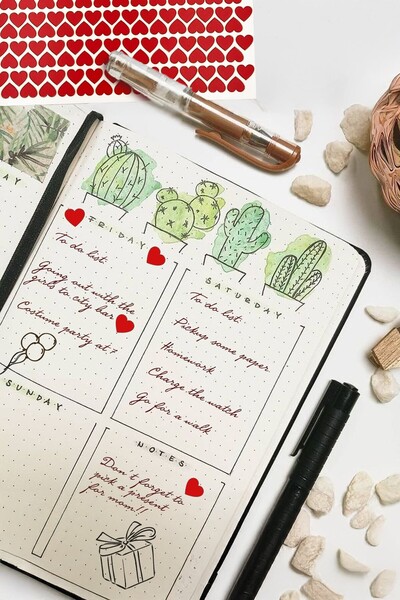 AY
FRIDAY
To do list:
Going out with the
girls to city bar
Costume party at 7
SATURDAY
To do list:
Pickup some paper
Homework
Charge the watch
Go for a walk
SUNDAY
NOTES
Don't forget to
pick a present
for mom!!